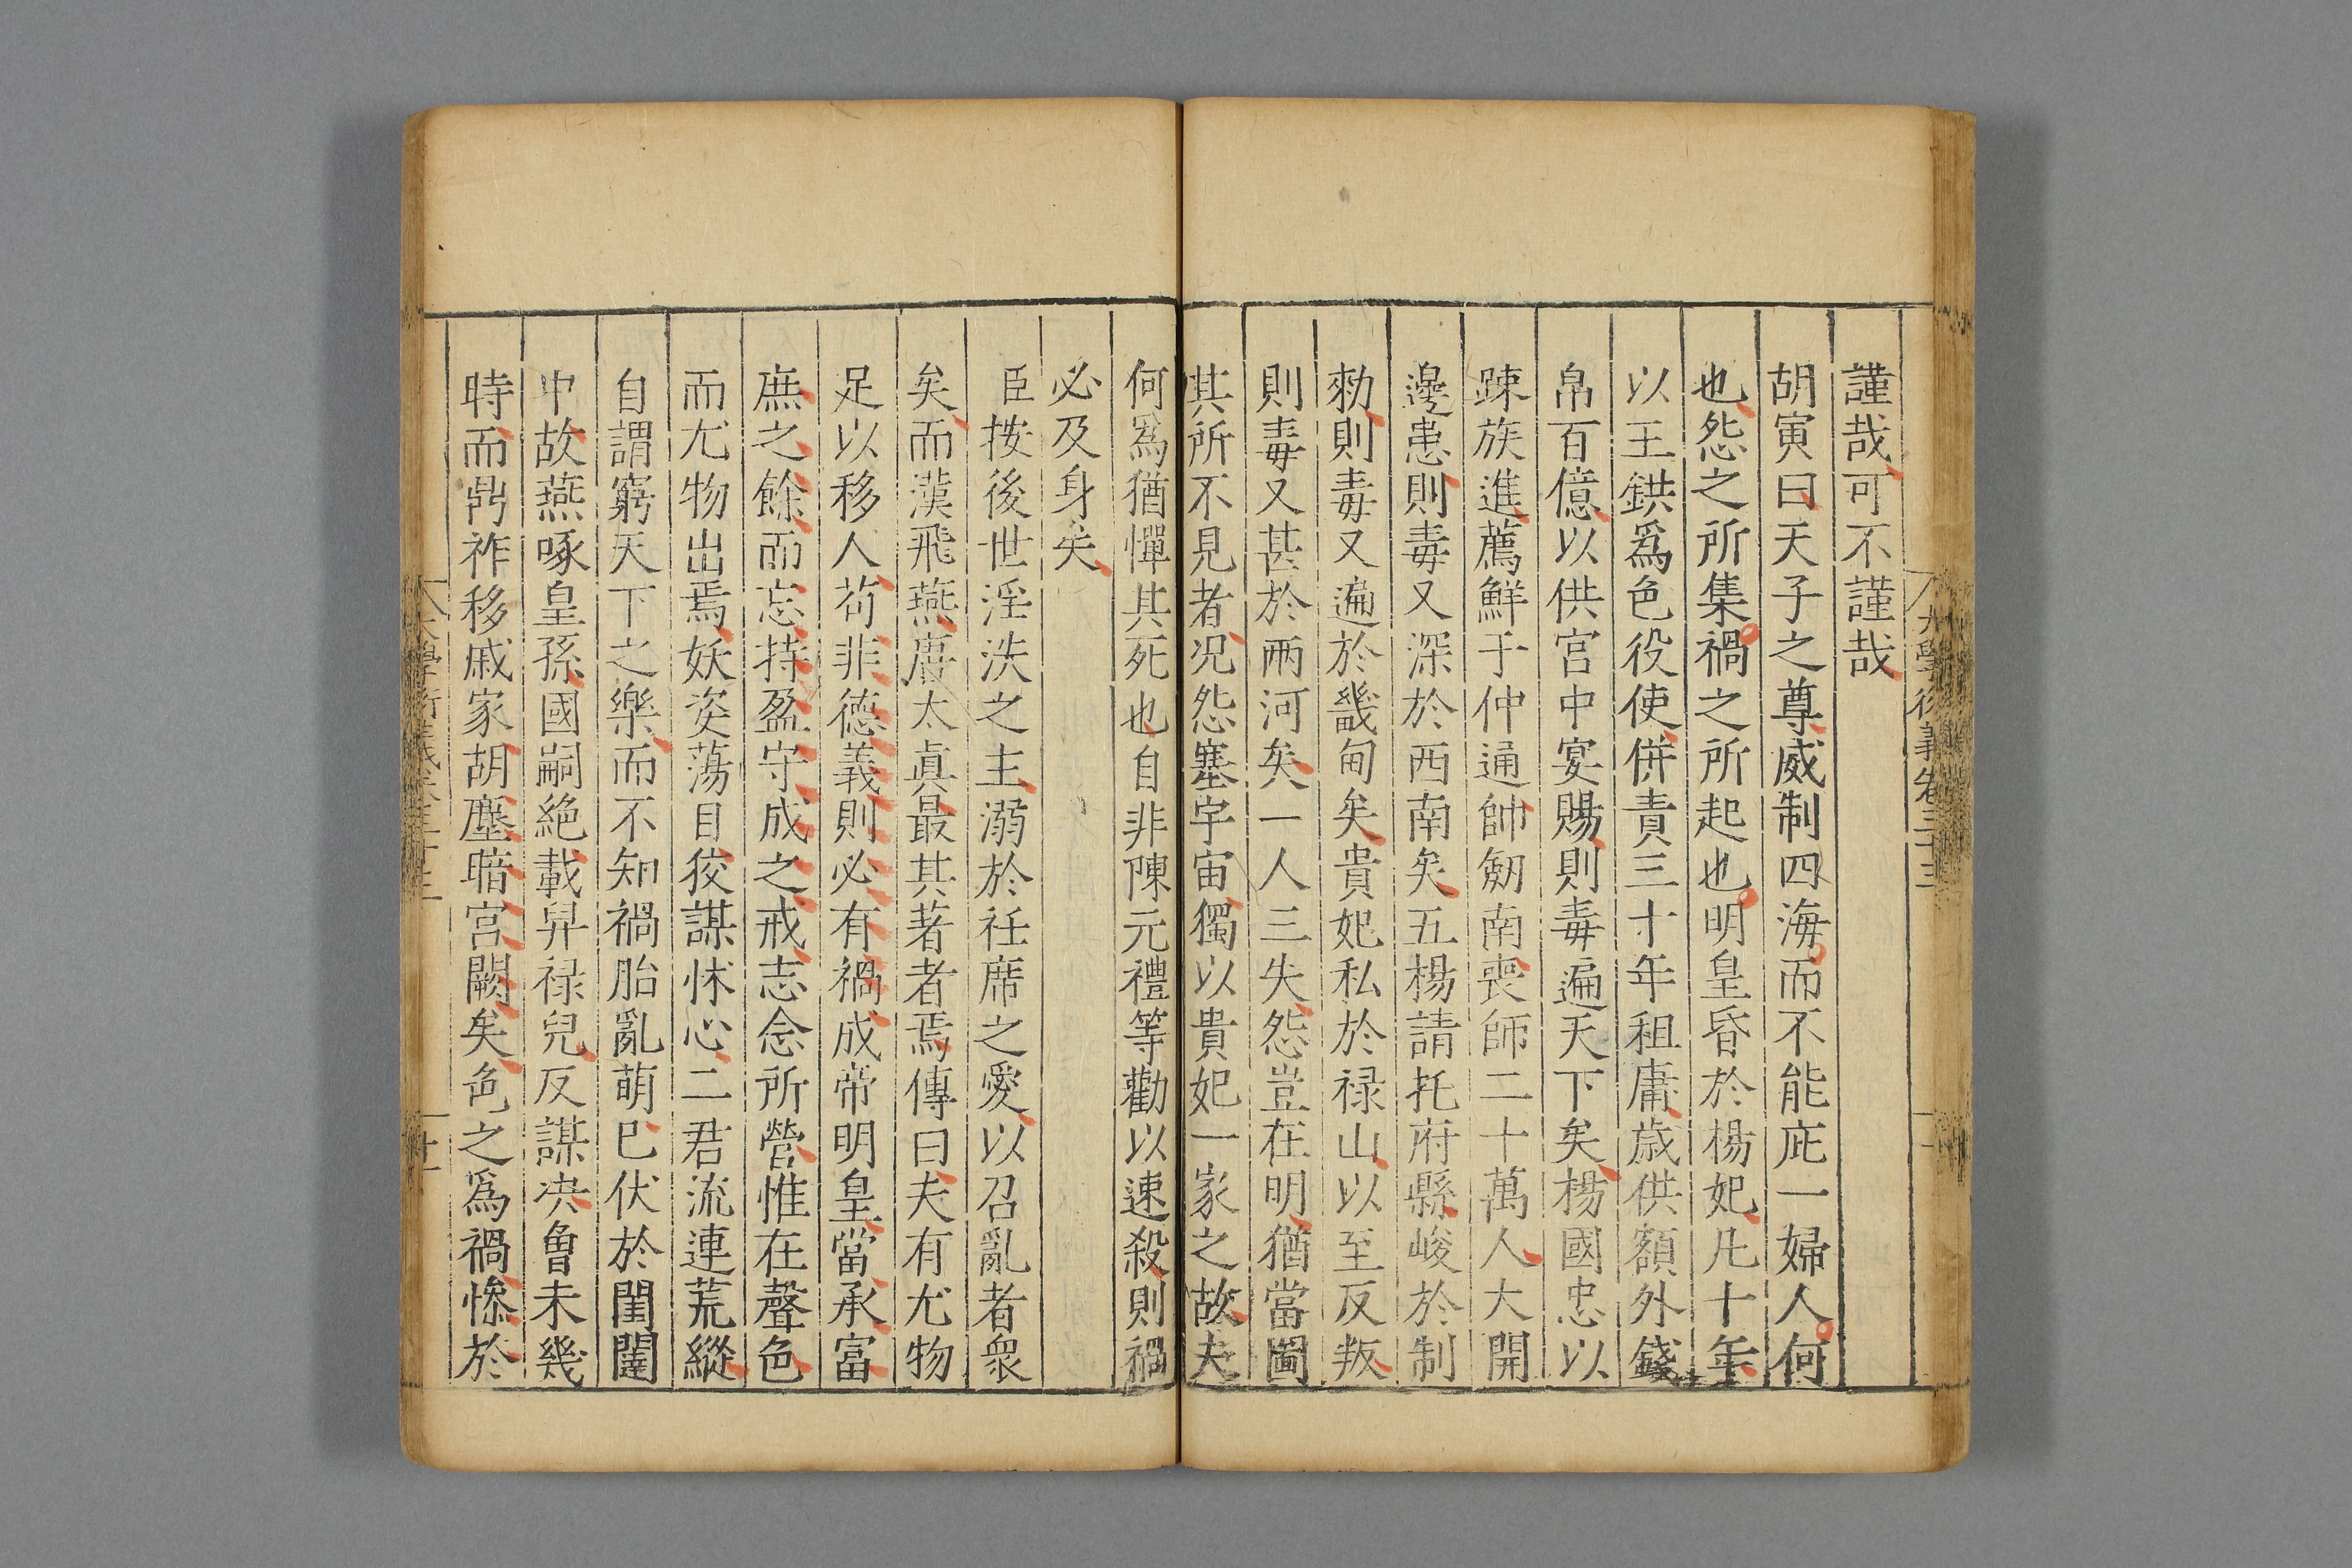 謹哉可不謹哉
胡寅曰天子之尊威制四海而不能庇一婦人何
也怨之所集禍之所起也明皇昏於楊妃凡十年
以王鉷爲色役使併責三十年租庸歲供額外錢
帛百億以供宮中宴賜則毒遍天下矣楊國忠以
踈族進薦鮮于仲通帥劒南喪師二十萬人大開
邊患則毒又深於西南矣五楊請托府縣峻於制
勑則毒又遍於畿甸矣貴妃私於禄山以至反叛
則毒又甚於兩河矣一人三失怨豈在明猶當圖
其所不見者况怨塞宇宙獨以貴妃一家之故夫
何爲猶憚其死也自非陳元禮等勸以速殺則禍
必及身矣
臣按後世淫泆之主溺於袵席之愛以召亂者衆
矣而漢飛燕唐太眞最其著者焉傳曰夫有尤物
足以移人苟非德義則必有禍成帝明皇當承富
庶之餘而忘持盈守成之戒志念所營惟在聲色
而尤物出焉妖姿蕩目狡謀怵心二君流連荒縱
自謂窮天下之樂而不知禍胎亂萌已伏於閨闥
中故燕啄皇孫國嗣絶載舁禄兒反謀决曾未幾
時而鼎祚移戚家胡塵暗宮闕矣色之爲禍慘於